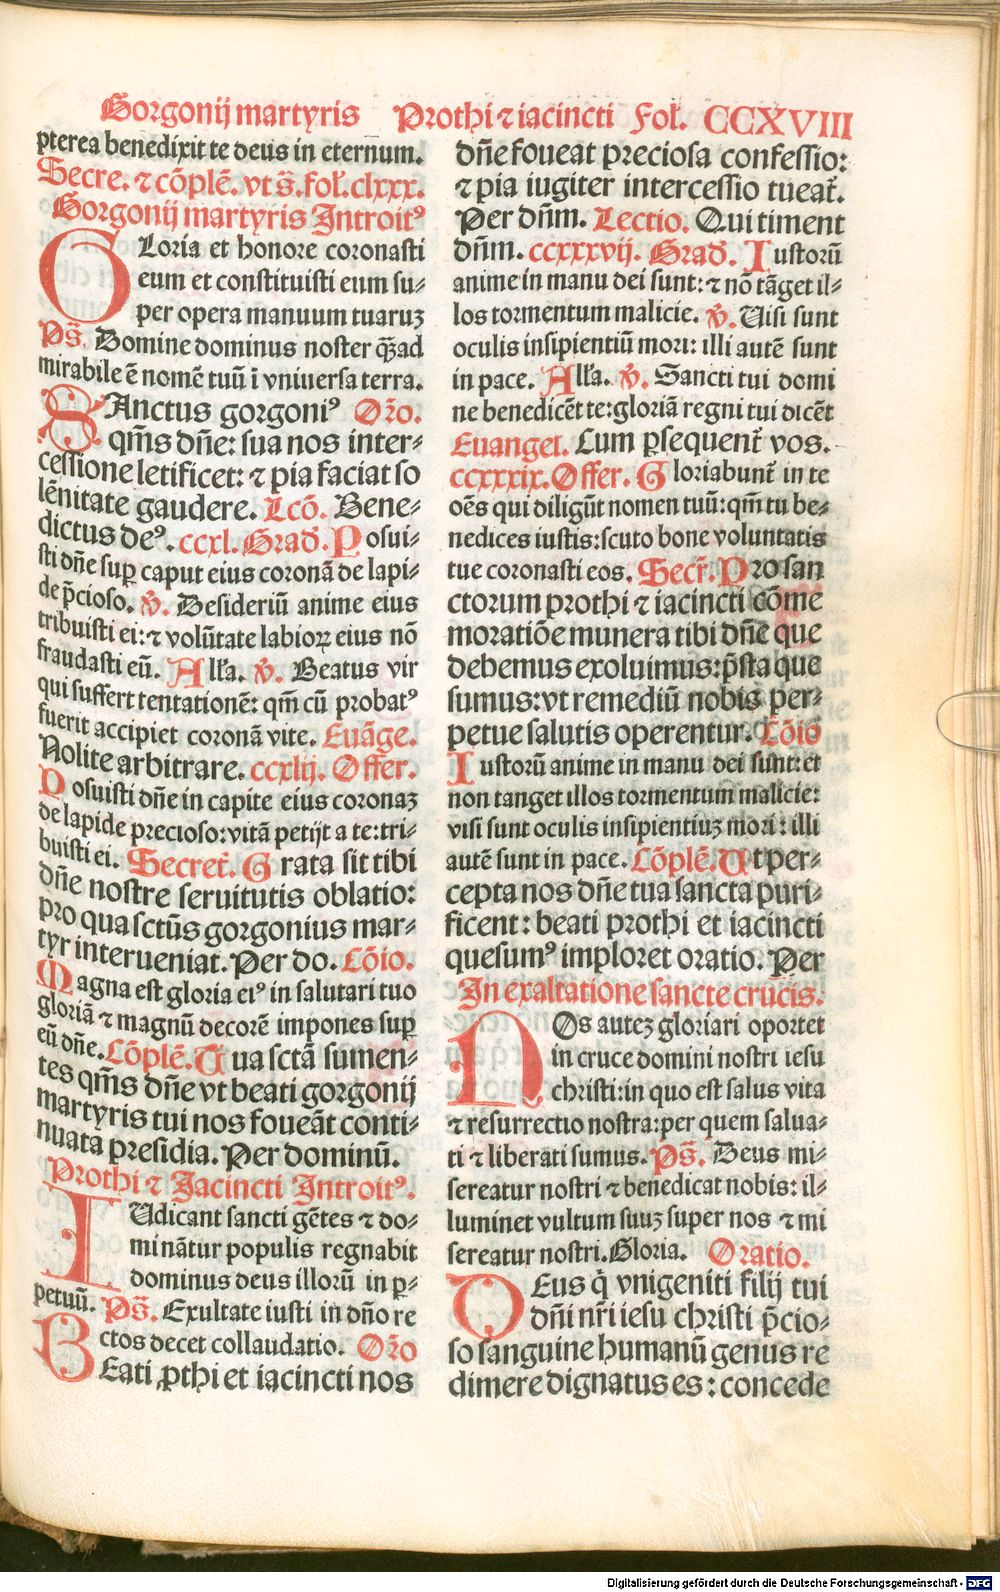 Gorgonij martyris Prothi ⁊ iacincti Fol. CCXVIII
pterea benedixit te deus in eternum.
Secre. ⁊ cōplē. vt s̄. fol. clxxx.
Gorgonij martyris Introitꝰ
GLoria et honore coronasti
eum et constituisti eum su⸗
per opera manuum tuaruꝫ
Ps̄. Domine dominus noster q̄ȝad
mirabile ē nomē tuū ī vniuersa terra.
SAnctus gorgoniꝰ Oro.
qm̄s dn̄e: sua nos inter⸗
cessione letificet: ⁊ pia faciat so
lēnitate gaudere. Lcō. Bene⸗
dictus deꝰ. ccxl. Grad. Posui⸗
sti dn̄e suꝑ caput eius coronā de lapi⸗
de p̄cioso. v̄. Desideriū anime eius
tribuisti ei: ⁊ volūtate labioꝝ eius nō
fraudasti eū. Alla. v̄. Beatus vir
qui suffert tentationē: qm̄ cū probatꝰ
fuerit accipiet coronā vite. Euāge.
Nolite arbitrare. ccxlij. Offer.
Posuisti dn̄e in capite eius coronaꝫ
de lapide precioso: vitā petijt a te: tri⸗
buisti ei. Secret̄. Grata sit tibi
dn̄e nostre seruitutis oblatio:
pro qua sctūs gorgonius mar⸗
tyr interueniat. Per do. Cōio.
Magna est gloria eiꝰ in salutari tuo
gloriā ⁊ magnū decorē impones suꝑ
eū dn̄e. Cōplē. Tua sctā sumen⸗
tes qm̄s dn̄e vt beati gorgonij
martyris tui nos foueāt conti⸗
nuata presidia. Per dominū.
Prothi ⁊ Iacincti Introitꝰ.
IUdicant sancti gētes ⁊ do⸗
minātur populis regnabit
dominus deus illorū in ꝑ⸗
petuū. Ps̄. Exultate iusti in dn̄o re
ctos decet collaudatio. Oro
BEati ꝓthi et iacincti nos
dn̄e foueat preciosa confessio:
⁊ pia iugiter intercessio tueat̄.
Per dn̄m. Lectio. Qui timent
dn̄m. ccxxxvij. Grad. Iustorū
anime in manu dei sunt: ⁊ nō tāget il⸗
los tormentum malicie. v̄. Uisi sunt
oculis insipientiū mori: illi autē sunt
in pace. Alla. v̄. Sancti tui domi
ne benedicēt te: gloriā regni tui dicēt
Euangel. Cum ꝑsequent̄ vos.
ccxxxix. Offer. Gloriabunt̄ in te
oēs qui diligūt nomen tuū: qm̄ tu be⸗
nedices iustis: scuto bone voluntatis
tue coronasti eos. Secr̄. Pro san
ctorum prothi ⁊ iacincti cōme
moratiōe munera tibi dn̄e que
debemus exoluimus: p̄sta que
sumus: vt remediū nobis per⸗
petue salutis operentur. Cōio
Iustorū anime in manu dei sunt: et
non tanget illos tormentum malicie:
visi sunt oculis insipientiuꝫ mori: illi
autē sunt in pace. Cōplē. Ut per⸗
cepta nos dn̄e tua sancta puri⸗
ficent: beati prothi et iacincti
quesumꝰ imploret oratio. Per
In exaltatione sancte crucis.
NOs auteꝫ gloriari oportet
in cruce domini nostri iesu
christi: in quo est salus vita
⁊ resurrectio nostra: per quem salua⸗
ti ⁊ liberati sumus. Ps̄. Deus mi⸗
sereatur nostri ⁊ benedicat nobis: il⸗
luminet vultum suuꝫ super nos ⁊ mi
sereatur nostri. Gloria. Oratio.
DEus q̇ vnigeniti filij tui
dn̄i nr̄i iesu christi p̄cio⸗
so sanguine humanū genus re
dimere dignatus es: concede
Digitalisierung gefördert durch die Deutsche Forschungsgemeinschaft - DFG